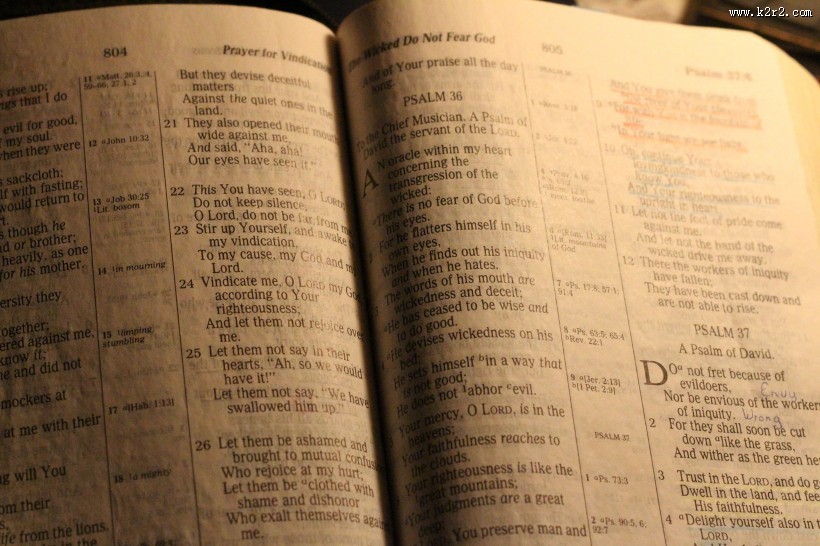 www.k2r2.com
804
Prayer for Vindication
rise up;
ngs that I do
evil for good,
my soul.
when they were
sackcloth;
lf with fasting;
would return to
s though he
nd or brother;
heavily, as one
for his mother.
ersity they
together;
ered against me,
know it;
ne and did not
mockers at
at me with their
ng will You
om their
ife from the lions.
12 ᵃJohn 10:32
13 ᵃJob 30:25
¹Lit. bosom
14 ¹in mourning
15 ¹limping,
stumbling
17 ᵃ[Hab. 1:13]
18 ¹a mighty
But they devise deceitful
matters
Against the quiet ones in the
land.
21 They also opened their mouth
wide against me,
And said, "Aha, aha!
Our eyes have seen it."
22 This You have seen, O LORD;
Do not keep silence.
O Lord, do not be far from me.
23 Stir up Yourself, and awake to
my vindication,
To my cause, my God and my
Lord.
24 Vindicate me, O LORD my God,
according to Your
righteousness;
And let them not rejoice over
me.
25 Let them not say in their
hearts, "Ah, so we would
have it!"
Let them not say, "We have
swallowed him up."
26 Let them be ashamed and
brought to mutual confusion
Who rejoice at my hurt;
Let them be ᵃclothed with
shame and dishonor
Who exalt themselves against
me.
The Wicked Do Not Fear God
805
And of Your praise all the day
long.
PSALM 36
To the Chief Musician. A Psalm of
David the servant of the LORD.
AN oracle within my heart
concerning the
transgression of the
wicked:
ᵃThere is no fear of God before
his eyes.
For he flatters himself in his
own eyes,
When he finds out his iniquity
and when he hates.
The words of his mouth are
wickedness and deceit;
ᵃHe has ceased to be wise and
to do good.
ᵃHe devises wickedness on his
bed;
He sets himself ᵇin a way that
is not good;
He does not ¹abhor ᶜevil.
Your mercy, O LORD, is in the
heavens;
Your faithfulness reaches to
the clouds.
Your righteousness is like the
great mountains;
ᵃYour judgments are a great
deep;
O LORD, You preserve man and
7 ᵃPs. 17:8; 57:1;
91:4
8 ᵃPs. 63:5; 65:4
ᵇRev. 22:1
9 ᵃ[Jer. 2:13]
ᵇ[1 Pet. 2:9]
PSALM 37
1 ᵃPs. 73:3
2 ᵃPs. 90:5, 6;
92:7
Psalm 37:6
10 Oh, continue Your
to those who
know You,
And Your righteousness to the
upright in heart.
11 Let not the foot of pride come
against me,
And let not the hand of the
wicked drive me away.
12 There the workers of iniquity
have fallen;
They have been cast down and
are not able to rise.
PSALM 37
A Psalm of David.
DOᵃ not fret because of
evildoers,
Envy
Nor be envious of the workers
of iniquity. Wrong
2 For they shall soon be cut
down ᵃlike the grass,
And wither as the green he
3 Trust in the LORD, and do g
Dwell in the land, and fee
His faithfulness.
4 ᵃDelight yourself also in t
LORD,